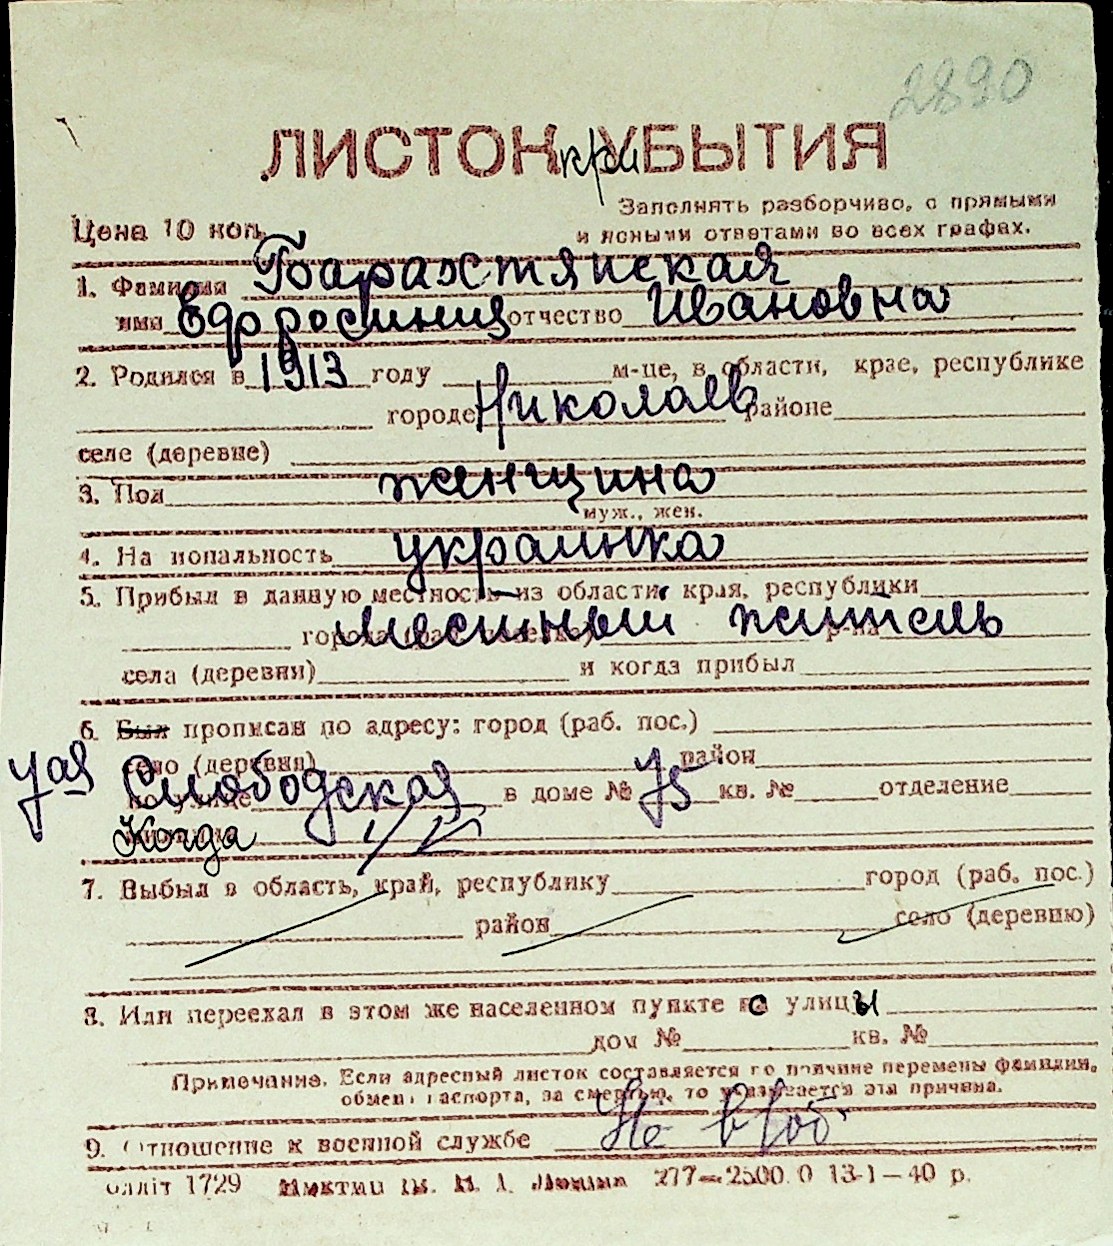 2890
ЛИСТОК при УБЫТИЯ
Заполнять разборчиво, с прямыми
Цена 10 коп.
и ясными ответами во всех графах.
1. Фамилия Барахтянская
имя Ефросиния отчество Ивановна
2. Родился в 1913 году м-це, в области, крае, республике
городе Николаев районе
селе (деревне)
3. Пол женщина
муж., жен.
4. На иональность украинка
5. Прибыл в данную местность из области, края, республики
местный житель
села (деревни) и когда прибыл
6. Был прописан по адресу: город (раб. пос.)
село (деревня) район
7ая Слободская в доме № 75 кв. № отделение
Когда
7. Выбыл в область, край, республику город (раб. пос.)
район село (деревню)
8. Или переехал в этом же населенном пункте с улицы
дом № кв. №
Примечание. Если адресный листок составляется по причине перемены фамилии,
обмена паспорта, за смертью, то указывается эта причина.
Не в/об
9. Отношение к военной службе
олліт 1729 277—2500. О 13-1—40 р.